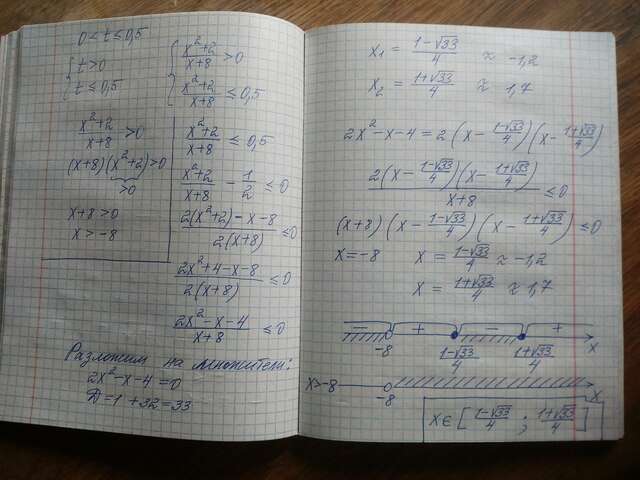 0 < t ≤ 0,5
{ t > 0
t ≤ 0,5
x²+2 / x+8 > 0
(x+8)(x²+2) > 0
> 0
x+8 > 0
x > -8
{ x²+2 / x+8 > 0
x²+2 / x+8 ≤ 0,5
x²+2 / x+8 ≤ 0,5
x²+2 / x+8 - 1/2 ≤ 0
2(x²+2) - x - 8 / 2(x+8) ≤ 0
2x²+4-x-8 / 2(x+8) ≤ 0
2x²-x-4 / x+8 ≤ 0
Разложим на множители:
2x²-x-4=0
D=1+32=33
x₁ = 1-√33 / 4 ≈ -1,2
x₂ = 1+√33 / 4 ≈ 1,7
2x²-x-4 = 2(x - 1-√33 / 4)(x - 1+√33 / 4)
2(x - 1-√33 / 4)(x - 1+√33 / 4) / x+8 ≤ 0
(x+8)(x - 1-√33 / 4)(x - 1+√33 / 4) ≤ 0
x=-8 x = 1-√33 / 4 ≈ -1,2
x = 1+√33 / 4 ≈ 1,7
- + - +
-8 1-√33 / 4 1+√33 / 4 x
x>-8 x
-8
x∈[ 1-√33 / 4 ; 1+√33 / 4 ]